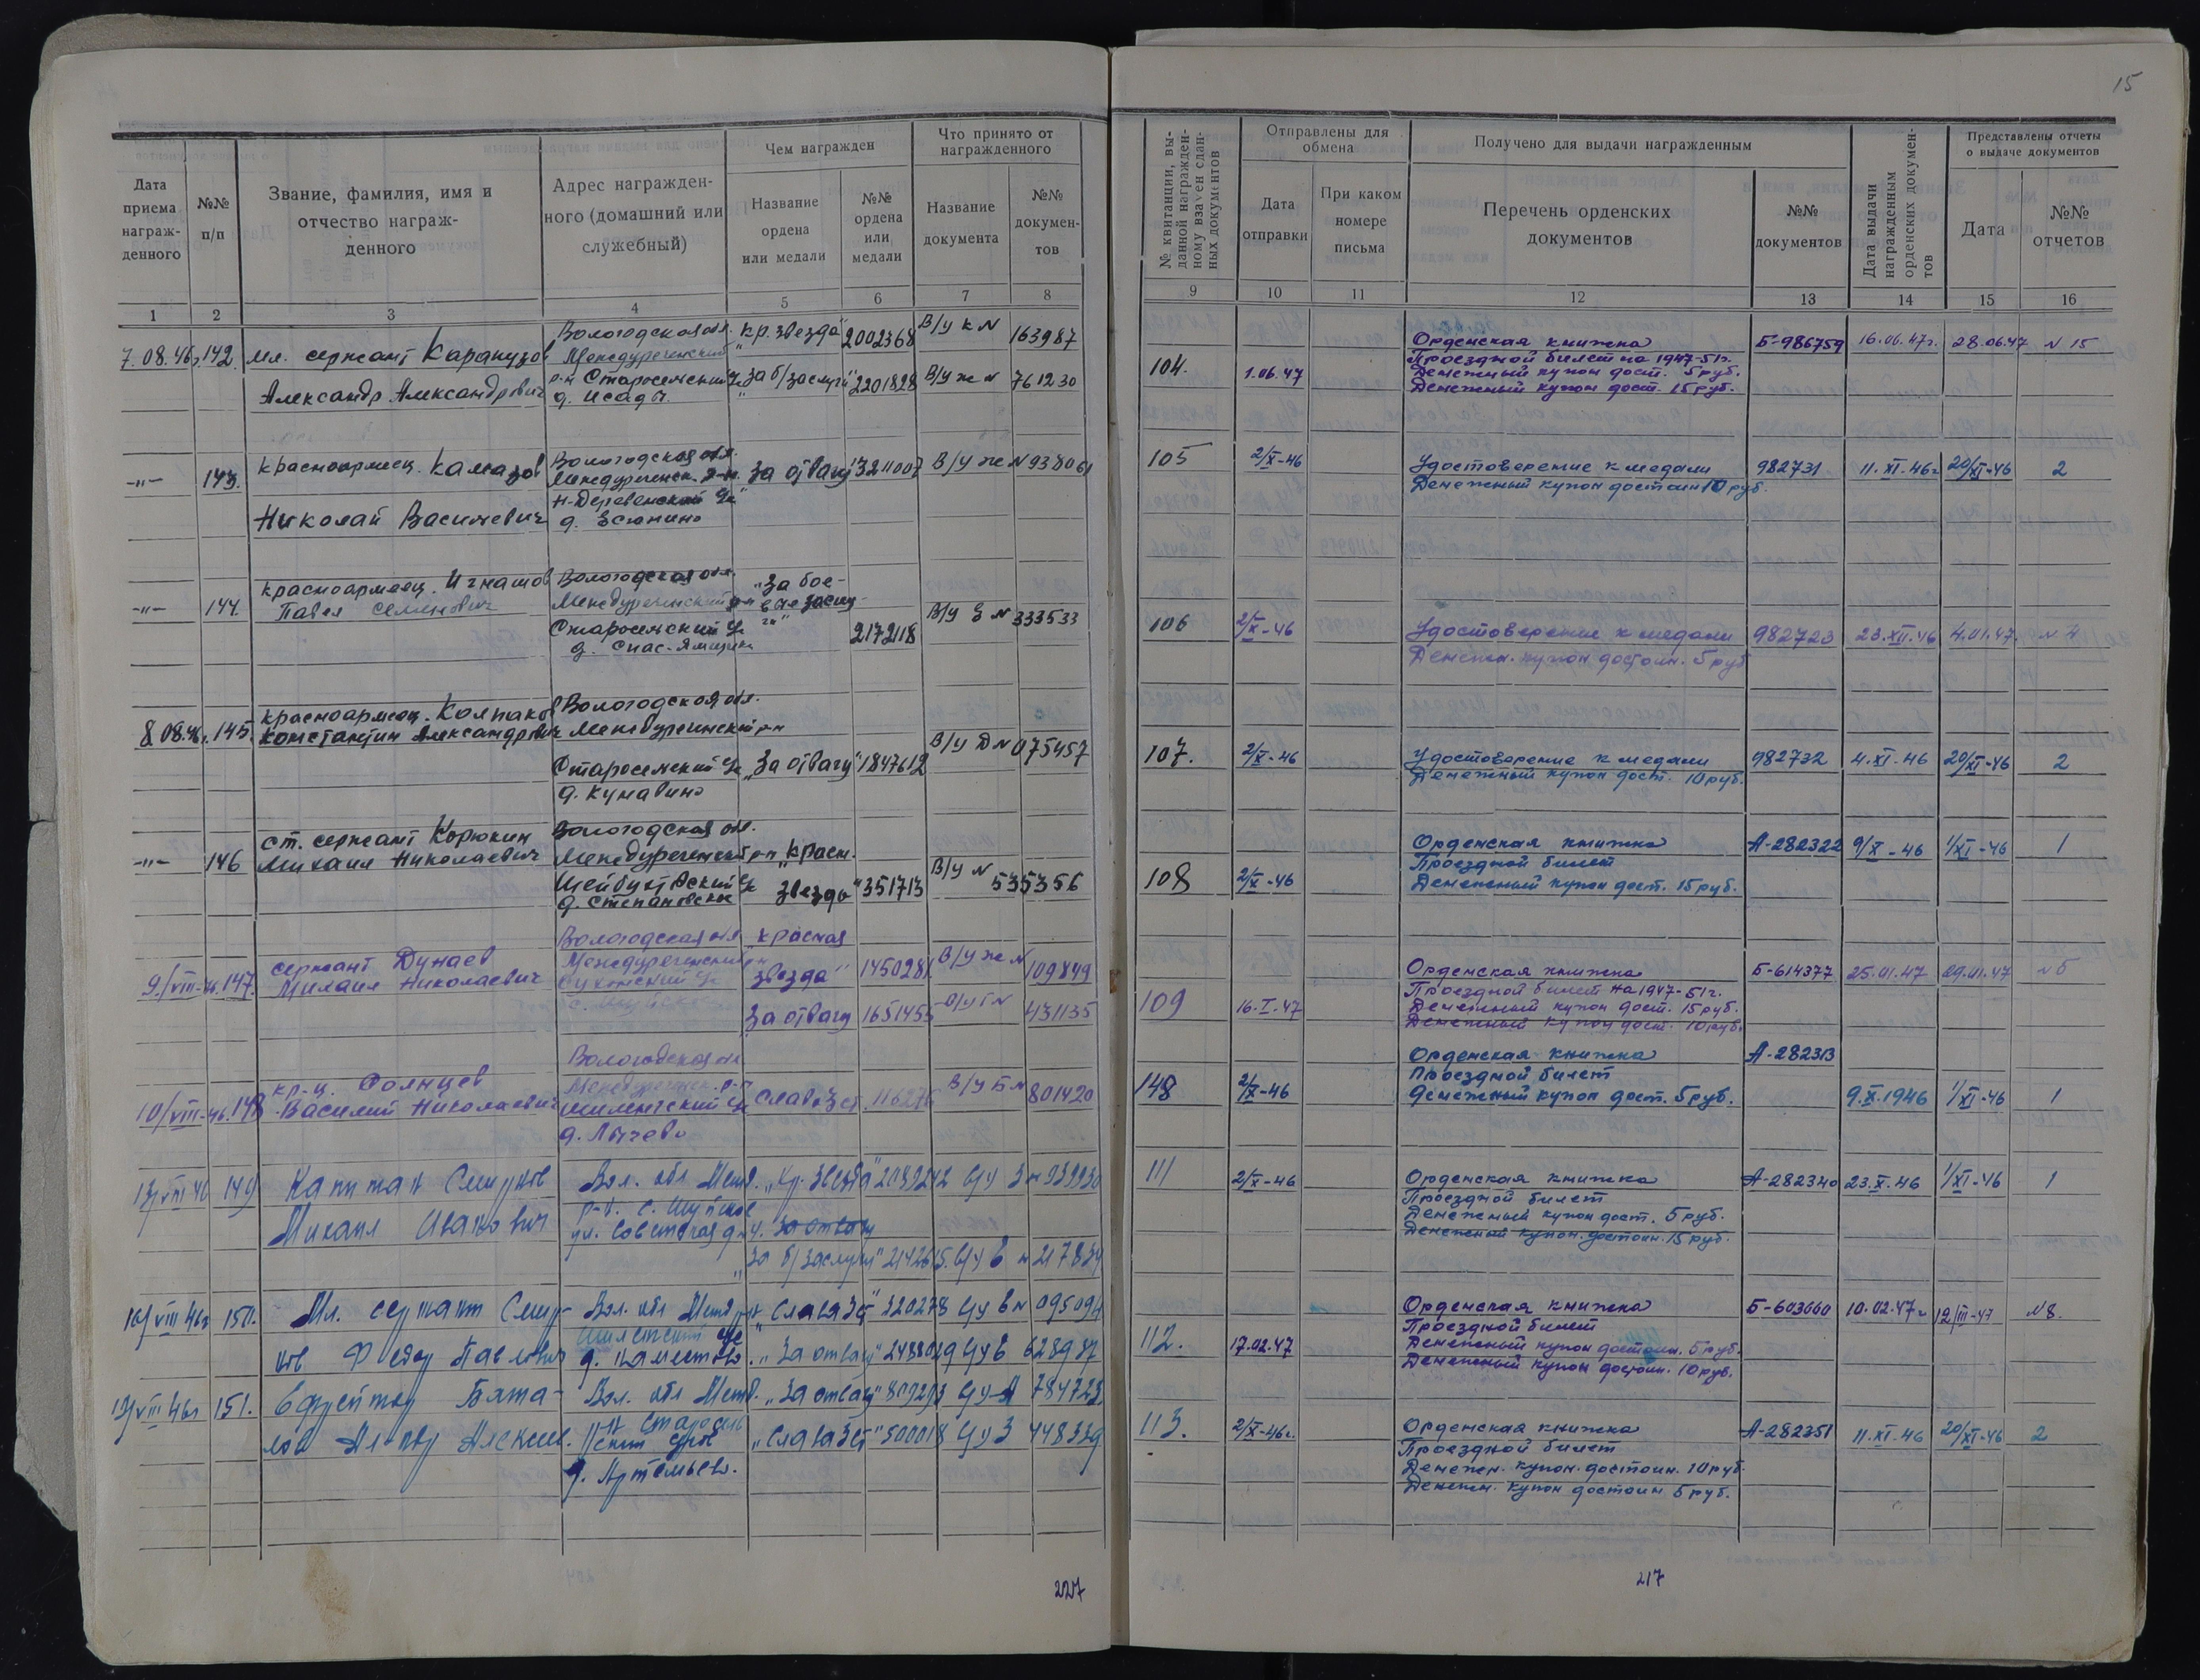 15
Чем награжден
Что принято от награжденного
Дата приема награж-денного
№№ п/п
Звание, фамилия, имя и отчество награж-денного
Адрес награжден-ного (домашний или служебный)
Название ордена или медали
№№ ордена или медали
Название документа
№№ докумен-тов
1 2 3 4 5 6 7 8
7.08.46г. 142. мл. сержант Карапузов Вологодская обл. "кр. звезда" 2002368 В/у к N 163987
Междуреченский
Александр Александрович р-н Старосельский "за б/заслуги" 2201828 В/у ж N 761230
д. Исады.
-"- 143. красноармеец. Камазов Вологодская обл. "За отвагу" 3211007 В/у ж N 938061
Междуреченск. р-н
Н-Деревенский
Николай Васильевич д.
-"- 144. красноармеец. Игнашов Вологодская обл. "За бое-
Павел Семенович Междуреченский р-н вые заслу-
ги" 2172118 В/У З N 333533
Старосельский
д. Спас-Ямщики
8.08.46г. 145. красноармеец. Колпаков Вологодская обл.
Константин Александрович Междуреченский р-н
Старосельский "За отвагу" 1847612 В/У Д N 075457
д. Кунавино
-"- 146 ст. сержант Корюкин Вологодская обл.
Михаил Николаевич Междуреченский р-н "красн.
Шейбухтовский звезды" 351713 В/У N 535356
д. Степановское
9/VIII-46. 147. сержант Дунаев Вологодская обл "красная
Михаил Николаевич Междуреченский р-н звезда" 1450281 В/у ж N 109849
Сухонский
За отвагу 1651455 О/у Г N 431135
10/VIII-46. 148 кр-ц. Солнцев Вологодская обл
Василий Николаевич Междуреченск. р-н Слава 3 ст. 116276 В/у Б N 801420
д. Лычево
149 Капитан Смирнов Вол. обл Межд. "Кр. Звезда" 2089242
Михаил Иванович р-н. с. Шуйское
ул. Советская За отвагу
"За б/заслуги"
150. Мл. сержант Смир- Вол. обл Межд р-н "Слава 3ст" 320278 095094
нов Федор Павлович "За отвагу" 628987
151. Ефрейтор Вол. обл Межд. "За отвагу" 809293
"Слава 3ст" 500018 448339
д. Артемьево.
227
№ квитанции, вы-данной награжден-ному взамен сдан-ных документов
Отправлены для обмена
Получено для выдачи награжденным
Дата выдачи награжденным орденских докумен-тов
Представлены отчеты о выдаче документов
Дата отправки
При каком номере письма
Перечень орденских документов
№№ документов
Дата
№№ отчетов
9 10 11 12 13 14 15 16
Орденская книжка Б-986759 16.06.47г. 28.06.47 N 15
104. 1.06.47 Проездной билет на 1947-51г.
Денежный купон дост. 5 руб.
Денежный купон дост. 15 руб.
105 2/X-46 Удостоверение к медали 982731 11.XI.46г 20/XI-46 2
Денежный купон достоин 10 руб.
106 2/X-46 Удостоверение к медали 982723 23.XII.46 4.01.47. N 4
Денежн. купон достоин. 5 руб
107. 2/X-46 Удостоверение к медали 982732 4.XI.46 20/XI-46 2
Денежный купон дост. 10 руб.
Орденская книжка А-282322 9/X-46 1/XI-46 1
Проездной билет
108 2/X-46 Денежный купон дост. 15 руб.
Орденская книжка Б-614377 25.01.47 29.01.47 N 5
109 16.I.47 Проездной билет на 1947-51г.
Денежный купон дост. 15 руб.
Денежный купон дост. 10 руб.
Орденская книжка А-282313
Проездной билет
148 2/X-46 денежный купон дост. 5 руб. 9.X.1946 1/XI-46 1
111 2/X-46 Орденская книжка А-282340 23.X.46 1/XI-46 1
Проездной билет
Денежный купон дост. 5 руб.
Денежный купон. достоин. 15 руб.
Орденская книжка Б-603660 10.02.47г 12/III-47 N8.
Проездной билет
112. 17.02.47 Денежный купон достоин. 5 руб.
Денежный купон достоин. 10 руб.
113. 2/X-46г. Орденская книжка А-282351 11.XI.46 20/XI-46 2
Проездной билет
Денежн. купон. достоин. 10 руб.
Денежн. купон достоин 5 руб.
217